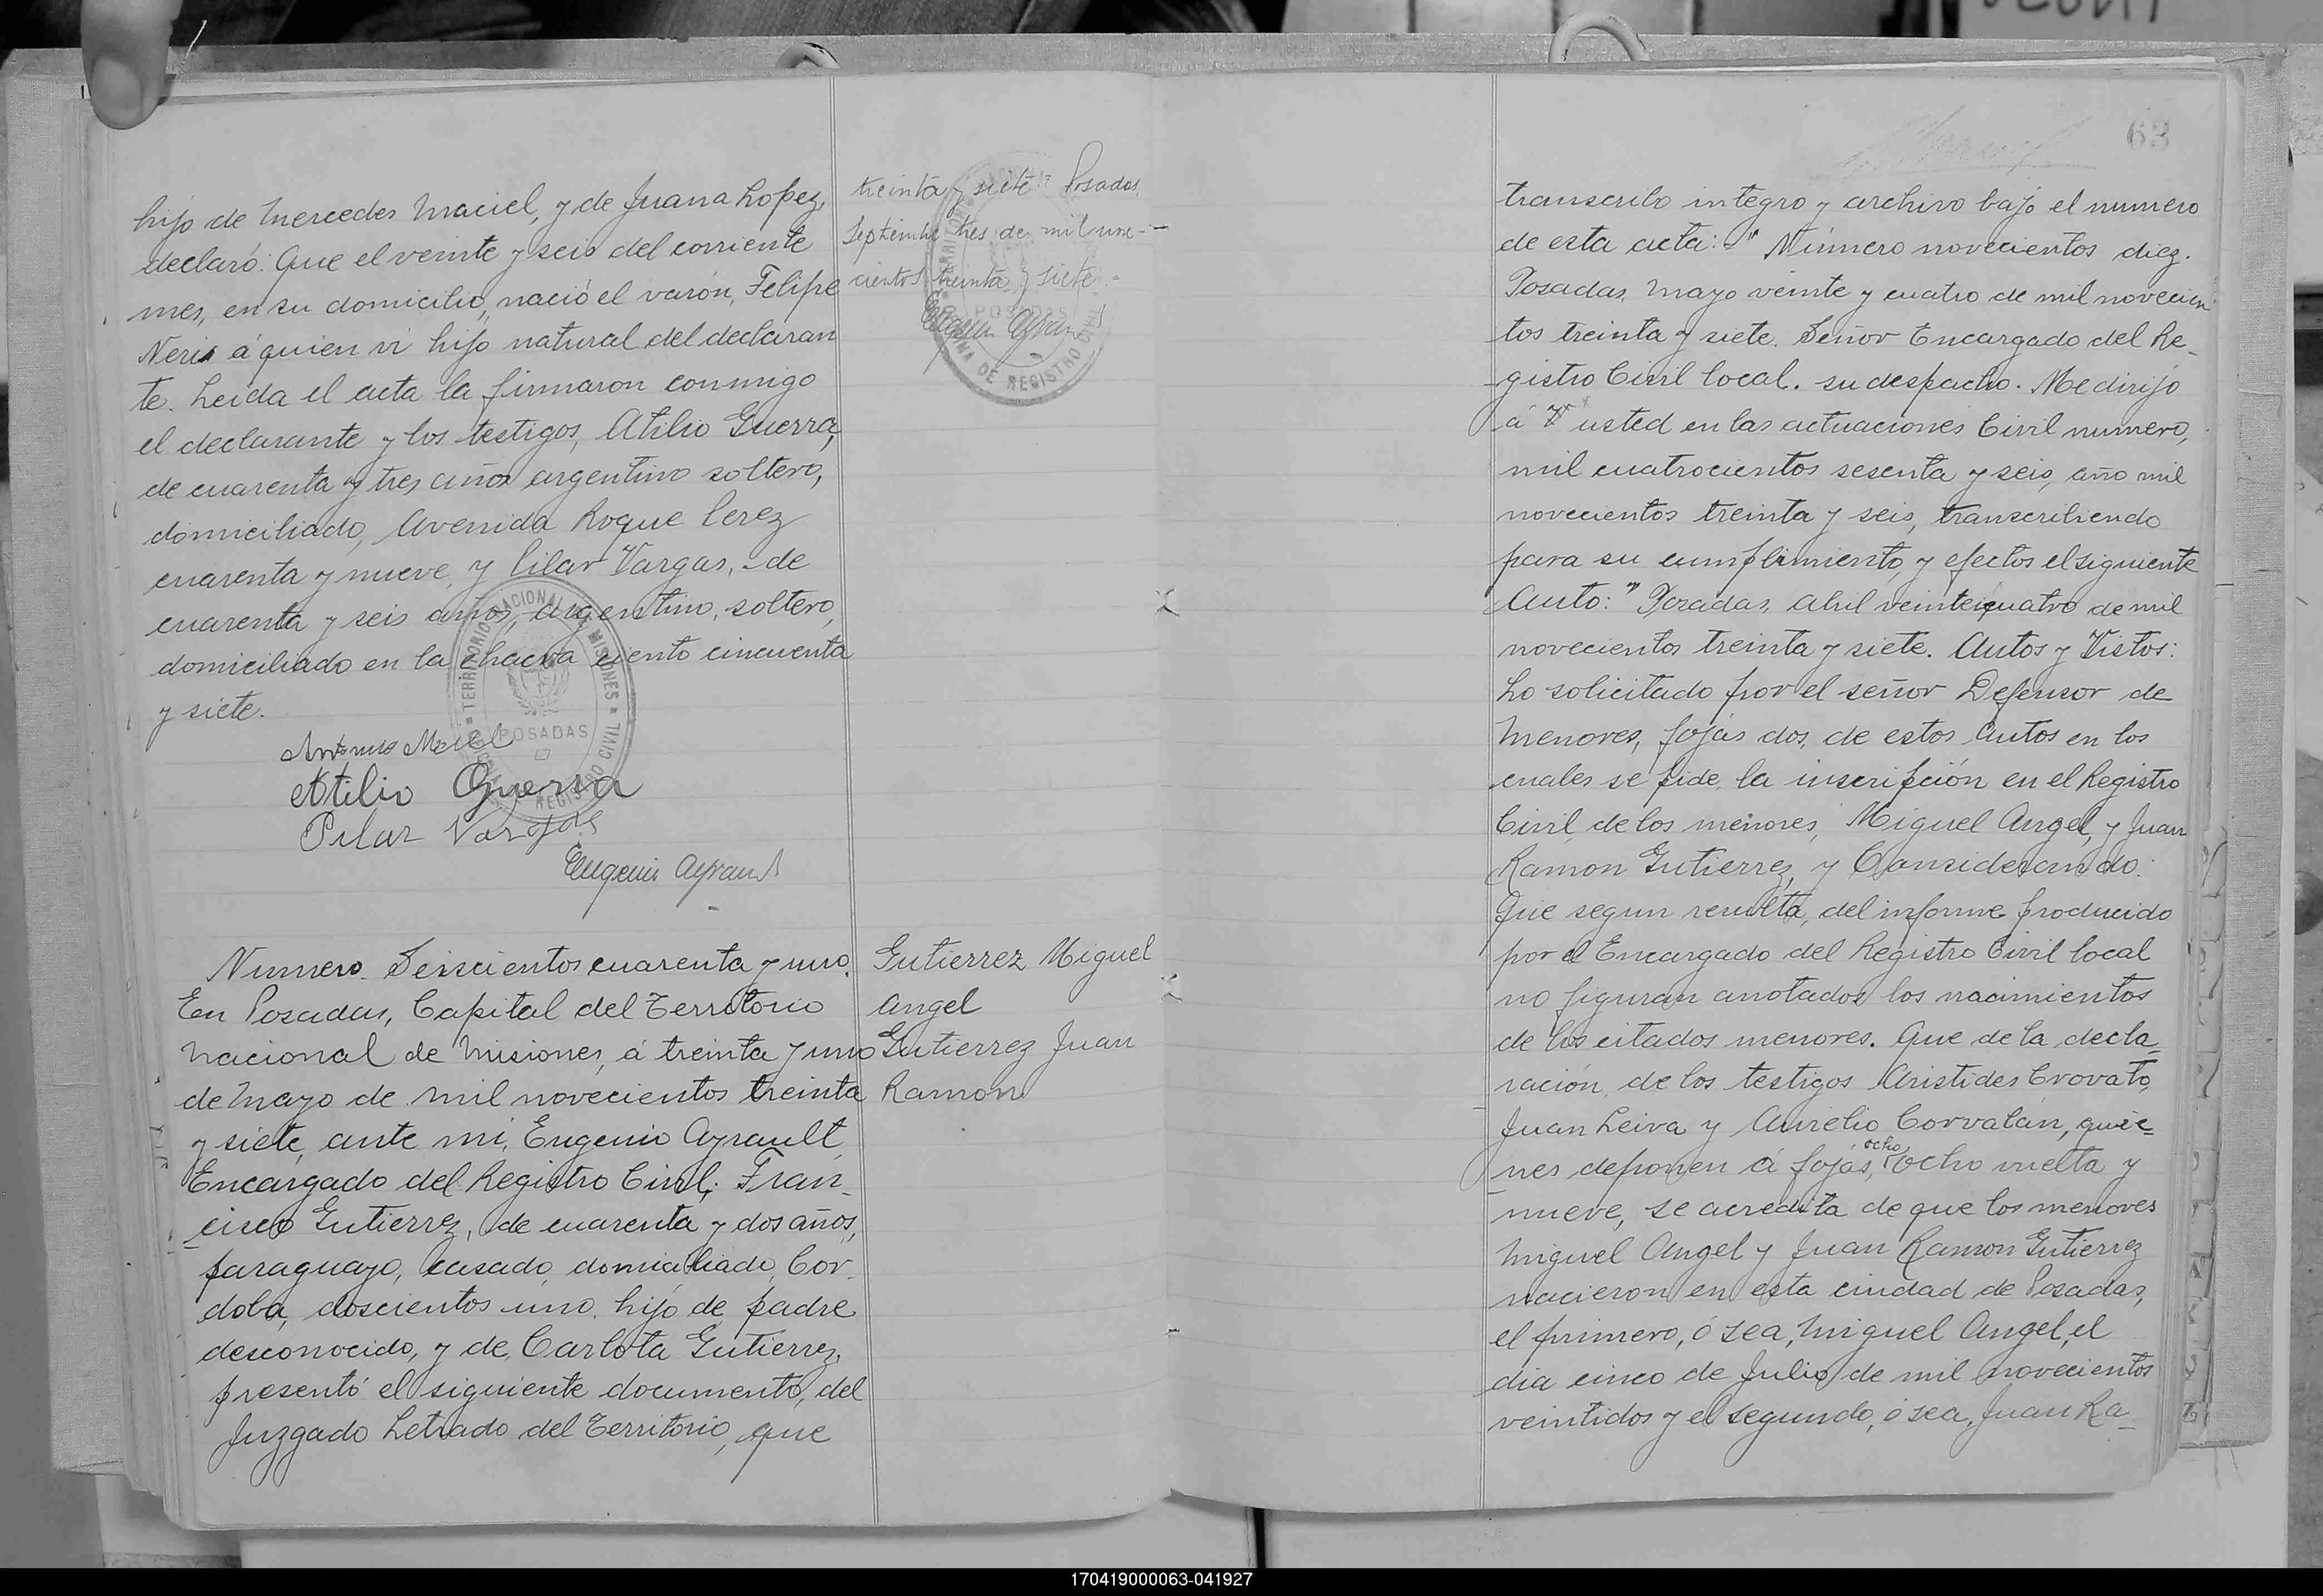 hijo de Mercedes Maciel, y de Juana Lopez,
declaró: Que el veinte y seis del corriente
mes, en su domicilio, nació el varón, Felipe
Neris á quien vi hijo natural del declaran
te. Leida el acta la firmaron conmigo
el declarante y los testigos, Atilio Guerra,
de cuarenta y tres años argentino soltero,
domiciliado, Avenida Roque Perez
cuarenta y nueve, y Pilar Vargas, de
cuarenta y seis años, argentino, soltero,
domiciliado en la chacra ciento cincuenta
y siete.
TERRITORIO NACIONAL DE MISIONES
POSADAS
REGISTRO CIVIL
Atilio Guerra
Pilar Vargas
Eugenio Ayrault
treinta y siete Posadas
Septiembre tres de mil nove-
cientos treinta y siete
Eugenio Ayrault
OFICINA DE REGISTRO CIVIL
Numero Seiscientos cuarenta y uno.
En Posadas, Capital del Territorio
Nacional de Misiones, á treinta y uno
de Mayo de mil novecientos treinta
y siete, ante mi, Eugenio Ayrault
Encargado del Registro Civil; Fran-
cisco Gutierrez, de cuarenta y dos años,
paraguayo, casado, domiciliado, Cor-
doba, doscientos uno, hijo de padre
desconocido, y de Carlota Gutierrez,
presentó el siguiente documento, del
Juzgado Letrado del Territorio, que
Gutierrez Miguel
Angel
Gutierrez Juan
Ramon
63
transcribo integro y archivo bajo el numero
de esta acta:-" Número novecientos diez.
Posadas, Mayo veinte y cuatro de mil novecien
tos treinta y siete. Señor Encargado del Re-
gistro Civil local. su despacho. Me dirijo
á usted en las actuaciones Civil numero,
mil cuatrocientos sesenta y seis, año mil
novecientos treinta y seis, transcribiendo
para su cumplimiento, y efectos el siguiente
Auto:" Posadas, Abril veinteicuatro de mil
novecientos treinta y siete. Autos y Vistos:
Lo solicitado por el señor Defensor de
Menores, fojas dos, de estos Autos en los
cuales se pide, la inscripción en el Registro
Civil, de los menores, Miguel Angel, y Juan
Ramon Gutierrez, y Considerando:
Que segun resulta, del informe producido
por el Encargado del Registro Civil local
no figuran anotados los nacimientos
de los citados menores. Que de la decla-
ración, de los testigos Aristides Crovato,
Juan Leiva y Aurelio Corvalán, quie-
nes deponen á fojas, ocho ocho vuelta y
nueve, se acredita de que los menores
Miguel Angel y Juan Ramon Gutierrez
nacieron en esta ciudad de Posadas,
el primero, ó sea, Miguel Angel, el
dia cinco de Julio de mil novecientos
veintidos y el segundo, ó sea, Juan Ra-
170419000063-041927